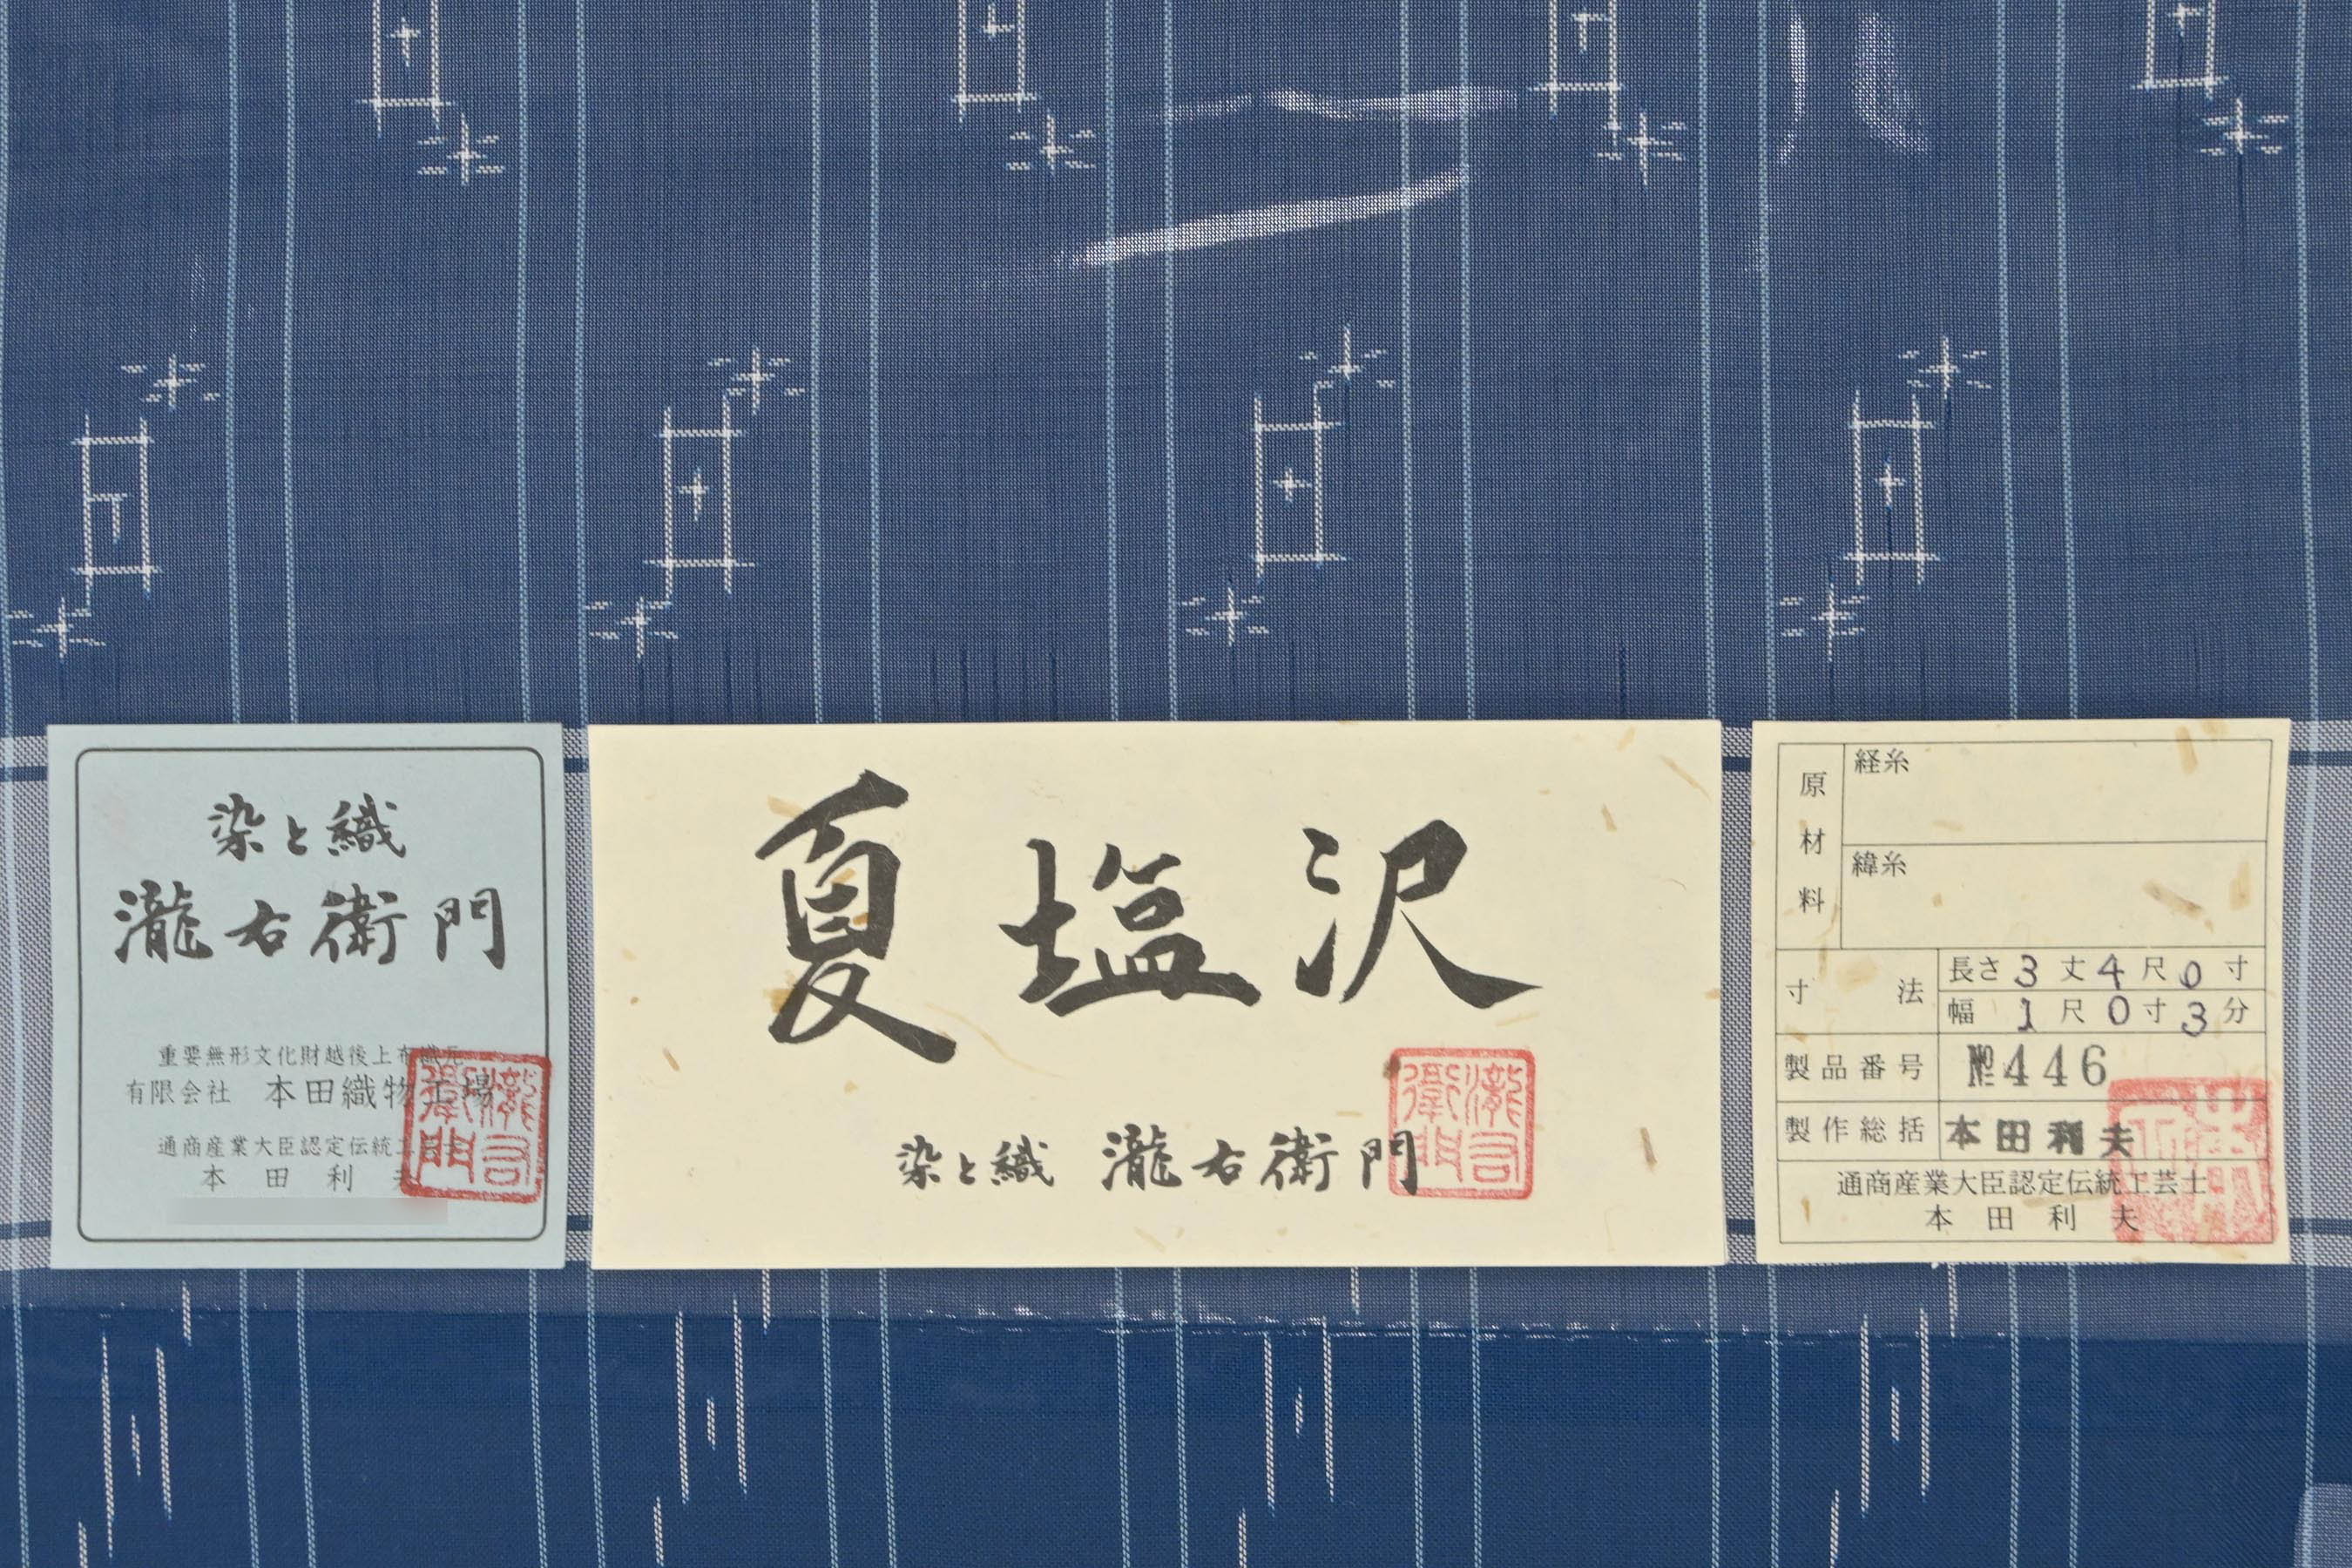 染と織
瀧右衛門
重要無形文化財越後上布織元
有限会社 本田織物工場
通商産業大臣認定伝統工
本田利夫
夏塩沢
染と織 瀧右衛門
瀧右衛門
原材料
経糸
緯糸
寸法
長さ3丈4尺0寸
幅 1尺0寸3分
製品番号 №446
製作総括 本田利夫
通商産業大臣認定伝統工芸士
本田利夫